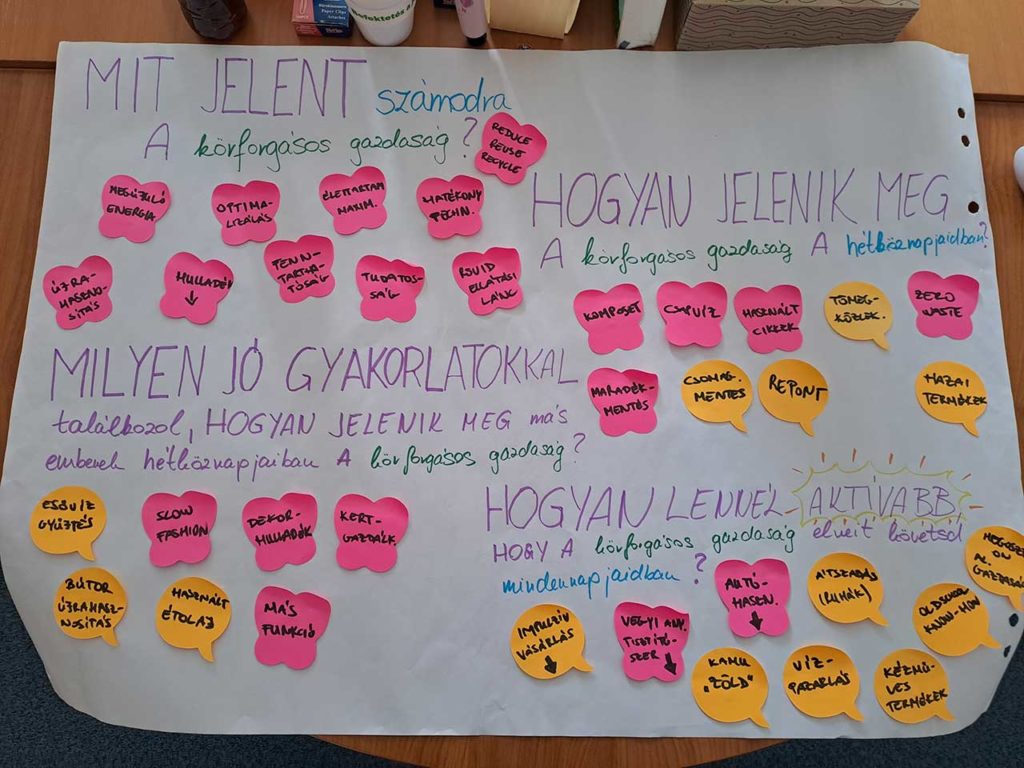 MIT JELENT számodra
A körforgásos gazdaság?
REDUCE
REUSE
RECYCLE
MEGÚJULÓ
ENERGIA
OPTIMA-
LIZÁLÁS
ÉLETTARTAM
MAXIM.
HATÉKONY
TECHN.
ÚJRA-
HASZNO-
SÍTÁS
HULLADÉK
↓
FENN-
TARTHA-
TÓSÁG
TUDATOS-
SÁG
RÖVID
ELLÁTÁSI
LÁNC
HOGYAN JELENIK MEG
A körforgásos gazdaság A hétköznapjaidban?
KOMPOSZT
CSAPVÍZ
HASZNÁLT
CIKKEK
TÖMEG-
KÖZLEK.
ZERO
WASTE
MARADÉK-
MENTÉS
CSOMAG.
MENTES
REPONT
HAZAI
TERMÉKEK
MILYEN JÓ GYAKORLATOKKAL
találkozol, HOGYAN JELENIK MEG más
emberek hétköznapjaiban A körforgásos gazdaság?
ESŐVÍZ
GYŰJTÉS
SLOW
FASHION
DEKOR-
HULLADÉK
KERT-
GAZDÁLK.
BÚTOR
ÚJRAHASZ-
NOSÍTÁS
HASZNÁLT
ÉTOLAJ
MÁS
FUNKCIÓ
HOGYAN LENNÉL AKTÍVABB,
HOGY A körforgásos gazdaság elveit kövesd
mindennapjaidban?
IMPULZÍV
VÁSÁRLÁS
↓
VEGYI ANY.
TISZTÍTÓ-
SZER ↓
AUTÓ-
HASZN.
↓
ÁTSZABÁS
(RUHÁK)
OLDSCHOOL
KNOW-HOW
KAMU
"ZÖLD"
VÍZ-
PAZARLÁS
KÉZMŰ-
VES
TERMÉKEK